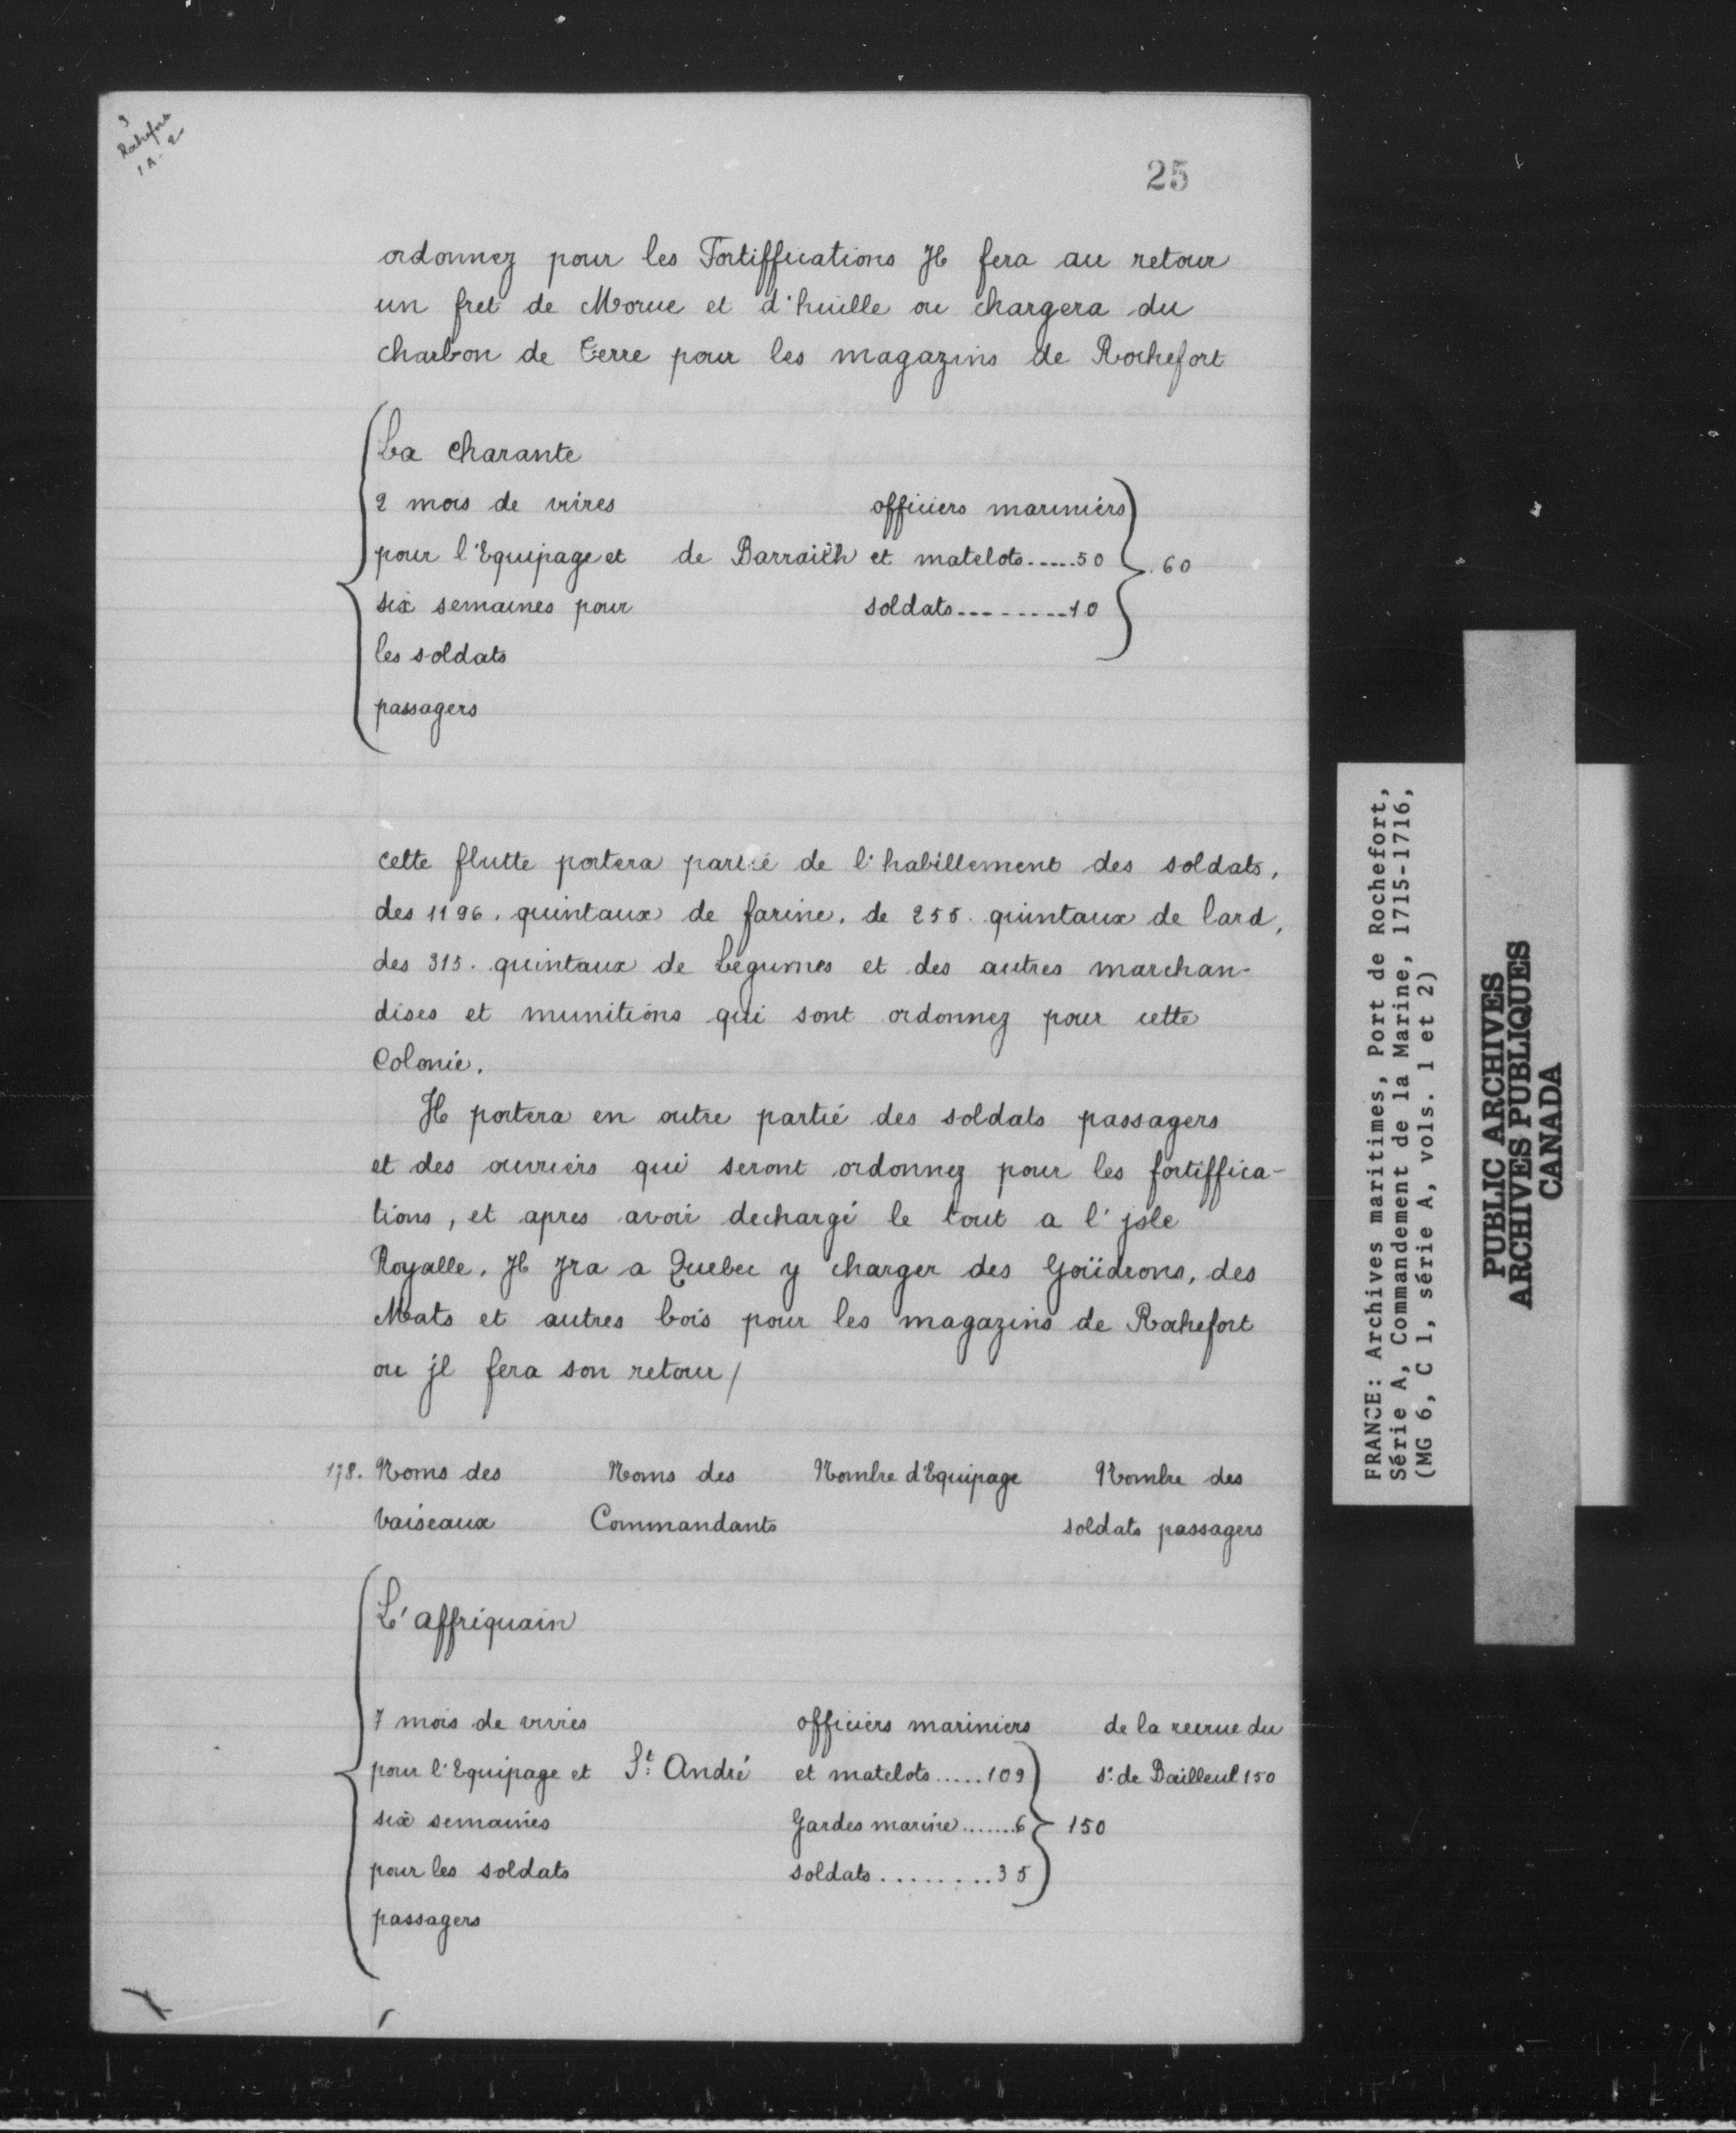 9
Rochefort
1 A - 2
25
ordonnez pour les Fortiffications Jl fera au retour
un fret de Morue et d'huille ou chargera du
charbon de terre pour les magazins de Rochefort
La charante
2 mois de vivres officiers mariniers
pour l'Equipage et de Barraith et matelots.....50 60
six semaines pour soldats.........10
les soldats
passagers
cette flutte portera partie de l'habillement des soldats,
des 1196. quintaux de farine. de 255. quintaux de lard,
des 315. quintaux de Legumes et des autres marchan-
dises et munitions qui sont ordonnez pour cette
Colonie.
Jl portera en outre partie des soldats passagers
et des ouvriers qui seront ordonnez pour les fortiffica-
tions, et apres avoir dechargé le tout a l'jsle
Royalle. Jl Jra a Quebec y charger des Goüdrons, des
Mats et autres bois pour les magazins de Rochefort
ou jl fera son retour/
178. Noms des Noms des Nombre d'Equipage Nombre des
Vaiseaux Commandants soldats passagers
L'affriquain
7 mois de vivres officiers mariniers de la recrue du
pour l'Equipage et St. André et matelots.....109 Sr. de Dailleul 150
six semaines Gardes marine.......6 150
pour les soldats soldats.........35
passagers
FRANCE: Archives maritimes, Port de Rochefort,
Série A, Commandement de la Marine, 1715-1716,
(MG 6, C 1, série A, vols. 1 et 2)
PUBLIC ARCHIVES
ARCHIVES PUBLIQUES
CANADA